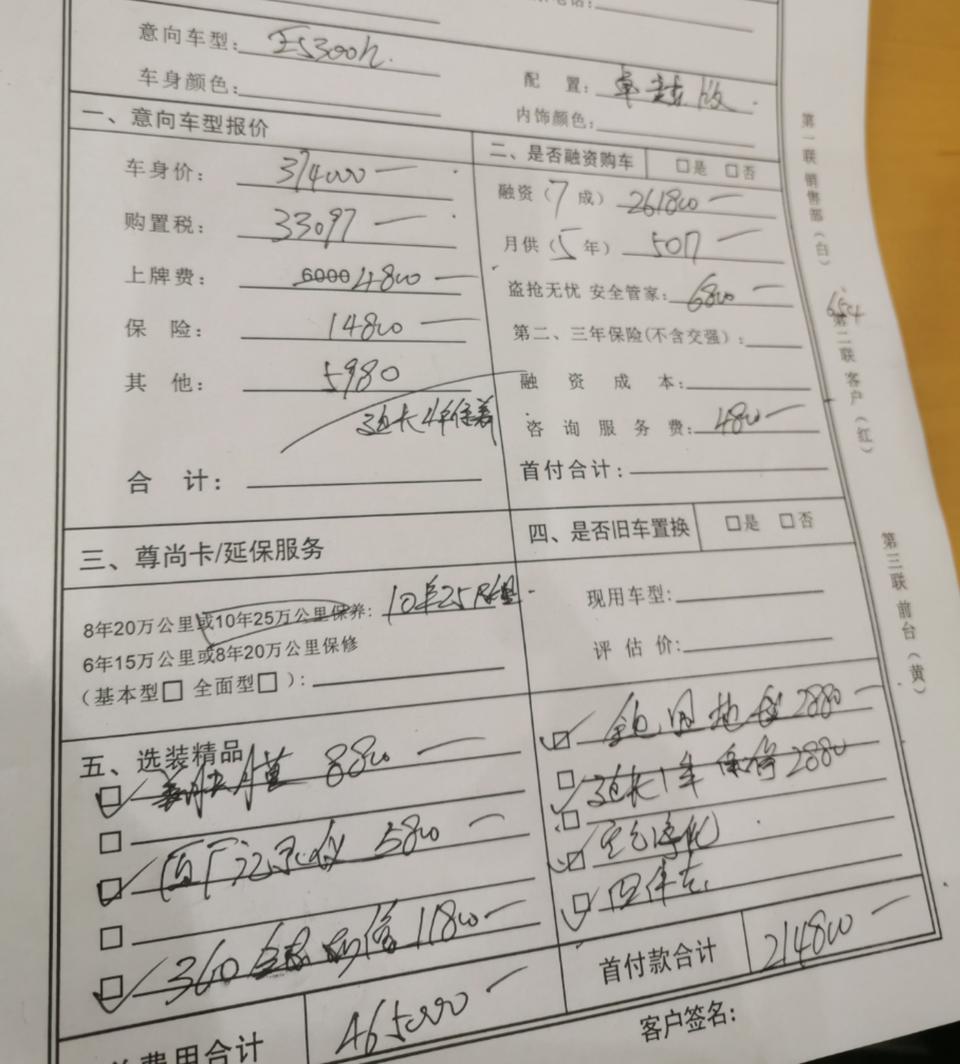 意向车型: ES300h.
车身颜色:
配 置: 卓越版
内饰颜色:
一、意向车型报价
车身价: 374000
购置税: 33097
上牌费: 6000 4800
保 险: 14800
其 他: 5980
延长4年保养
合 计:
二、是否融资购车 □是 □否
融资(7成) 261800
月供(5年) 5017
盗抢无忧 安全管家: 6800
第二、三年保险(不含交强):
融 资 成 本:
咨 询 服 务 费: 4800
首付合计:
三、尊尚卡/延保服务
8年20万公里或10年25万公里保养: 10年25万公里
6年15万公里或8年20万公里保修
(基本型□ 全面型□):
四、是否旧车置换 □是 □否
现用车型:
评 估 价:
五、选装精品
8800
原厂记录仪 5800
360 11800
全包围地毯 2880
延长1年 2880
费用合计 465000
首付款合计 214800
客户签名:
第一联 销售部(白)
654
第二联 客户(红)
第三联 前台(黄)